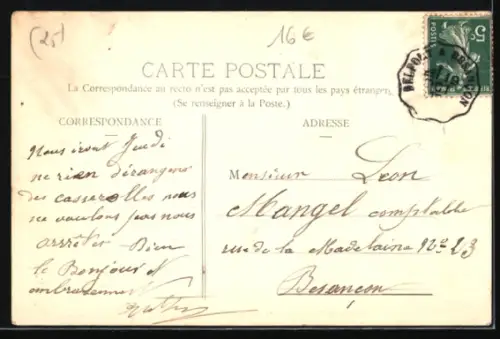 (25)
16€
CARTE POSTALE
La Correspondance au recto n'est pas acceptée par tous les pays étrangers
(Se renseigner à la Poste.)
CORRESPONDANCE
ADRESSE
Nous iront Jeudi
ne rien dérangons
des casserolles nous
ne voulons pas nous
arrêter Bien
le Bonjour et
embrassement
Monsieur Léon
Mangel comptable
rue de la Madelaine No 23
Besançon
5c
POSTES
BELFORT A BESANÇON